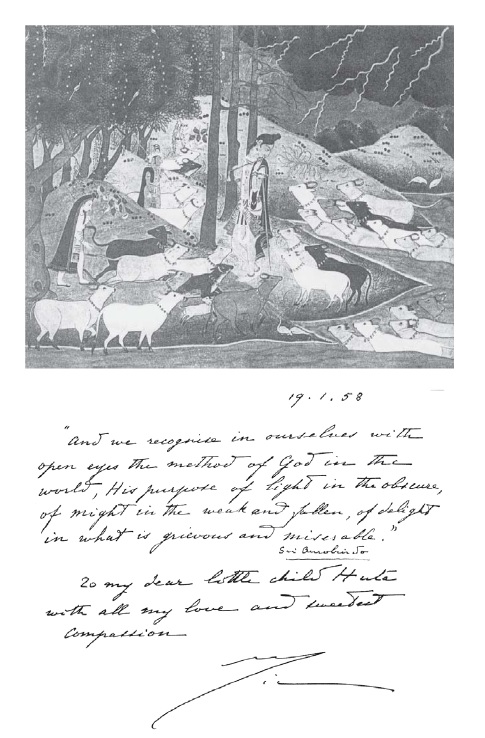 19.1.58
"And we recognise in ourselves with
open eyes the method of God in the
world, His purpose of light in the obscure,
of might in the weak and fallen, of delight
in what is grievous and miserable."
Sri Aurobindo
To my dear little child Huta
with all my love and sweetest
compassion